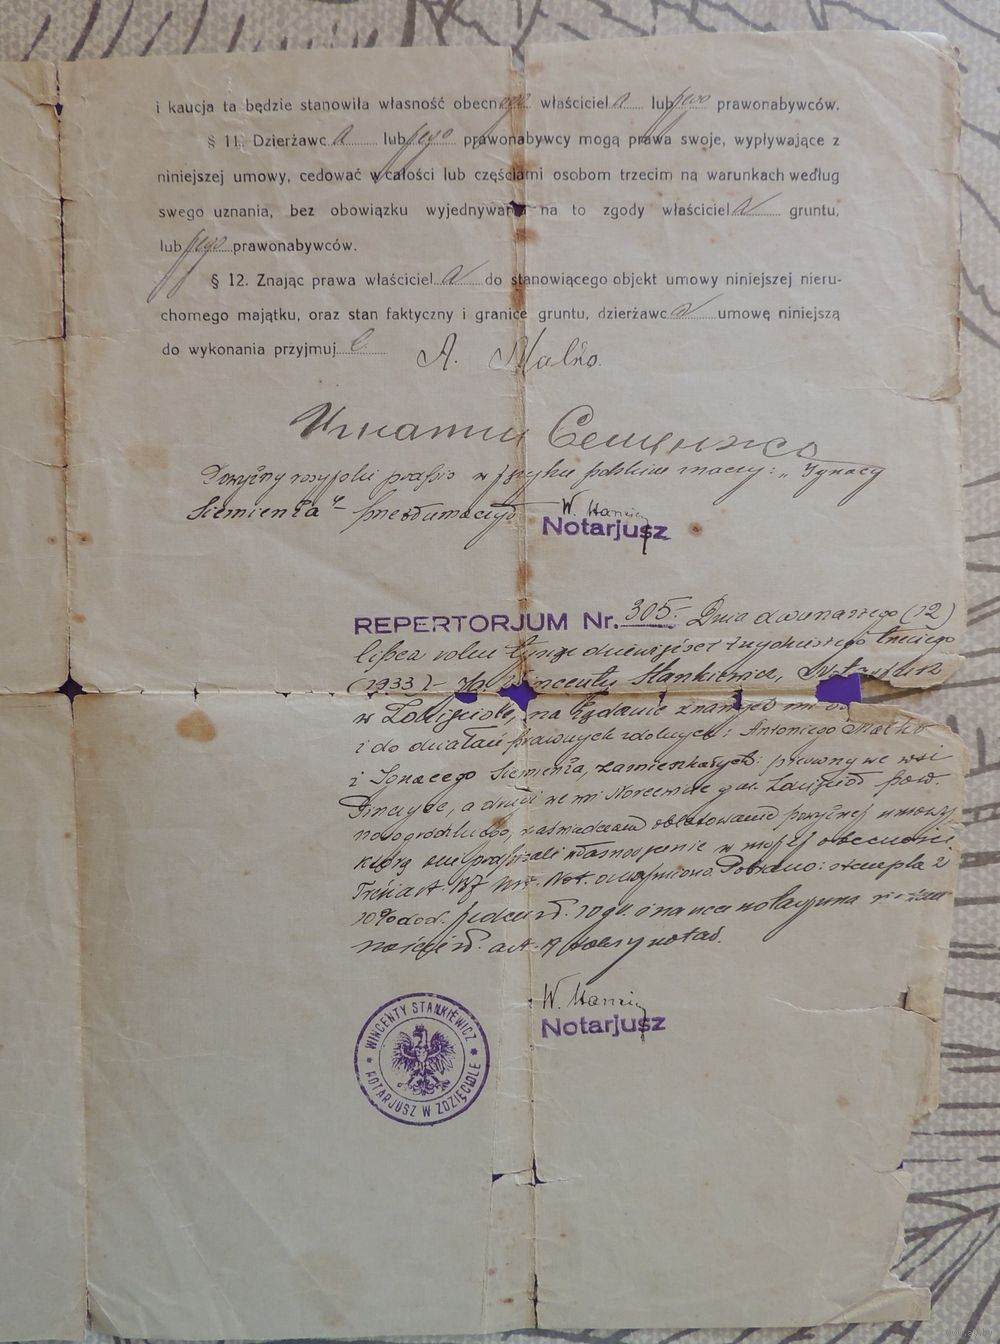 i kaucja ta będzie stanowiła własność obecnego właściciela lub jego prawonabywców.
§ 11. Dzierżawca lub jego prawonabywcy mogą prawa swoje, wypływające z
niniejszej umowy, cedować w całości lub częściami osobom trzecim na warunkach według
swego uznania, bez obowiązku wyjednywania na to zgody właściciela gruntu,
lub jego prawonabywców.
§ 12. Znając prawa właściciela do stanowiącego objekt umowy niniejszej nieru-
chomego majątku, oraz stan faktyczny i granice gruntu, dzierżawca umowę niniejszą
do wykonania przyjmuje
A. Malko.
Powyższy rosyjski podpis w języku polskim znaczy: „Ignacy
Siemienka" – przetłumaczył
Notarjusz
REPERTORJUM Nr. 305. Dnia dwunastego (12)
lipca roku tysiąc dziewięćset trzydziestego trzeciego
(1933) – Ja Wincenty Stankiewicz, Notarjusz
w Zdzięciole, na żądanie znanych mi
i do działań prawnych zdolnych: Antoniego Malko
i Ignacego Siemienka, zamieszkałych: pierwszy we wsi
a drugi we wsi gm. Zdzięcioł pow.
nowogródzkiego, zaświadczam powyższej umowy
którą oni podpisali własnoręcznie w mojej obecności.
Treść art. Not. Pobrano: stempla 2
10% dod. 10 gr. i na rzecz notarjusza
art. taksy notar.
Notarjusz
WINCENTY STANKIEWICZ
NOTARJUSZ W ZDZIĘCIOLE